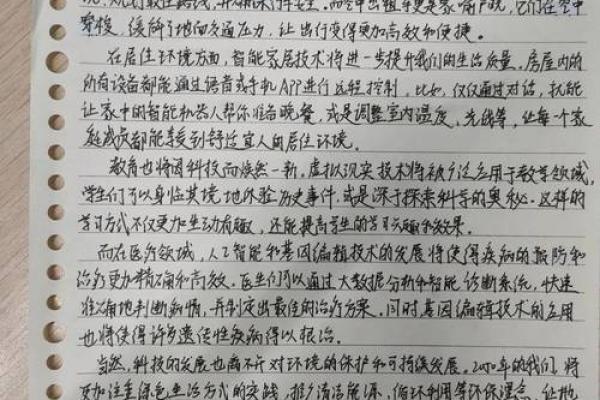 穿梭，缓解了地面交通压力，让出行变得更加高效和便捷。
在居住环境方面，智能家居技术将进一步提升我们的生活质量。房屋内的
所有设备都能通过语音或手机APP进行远程控制，比如，仅仅通过对话，就能
让家中的智能机器人帮你准备晚餐，或是调整室内温度、光线等，让每一个家
庭成员都能享受到舒适宜人的居住环境。
教育也将因科技而焕然一新。虚拟现实技术将被广泛应用于教育领域，
学生们可以身临其境地体验历史事件，或是深于探索科学的奥秘。这样的
学习方式不仅更加生动有趣，还能提高学生的学习兴趣和效果。
而在医疗领域，人工智能和基因编辑技术的发展将使得疾病的预防和
治疗更加精确和高效。医生们可以通过大数据分析和智能诊断系统，快速
准确地判断病情，并制定出最佳的治疗方案。同时基因编辑技术的应用
也将使得许多遗传性疾病得以根治。
当然，科技的发展也离不开对环境的保护和可持续发展。2050年的我们，将
更加注重绿色生活方式的实践，推广清洁能源，循环利用等环保理念，让地